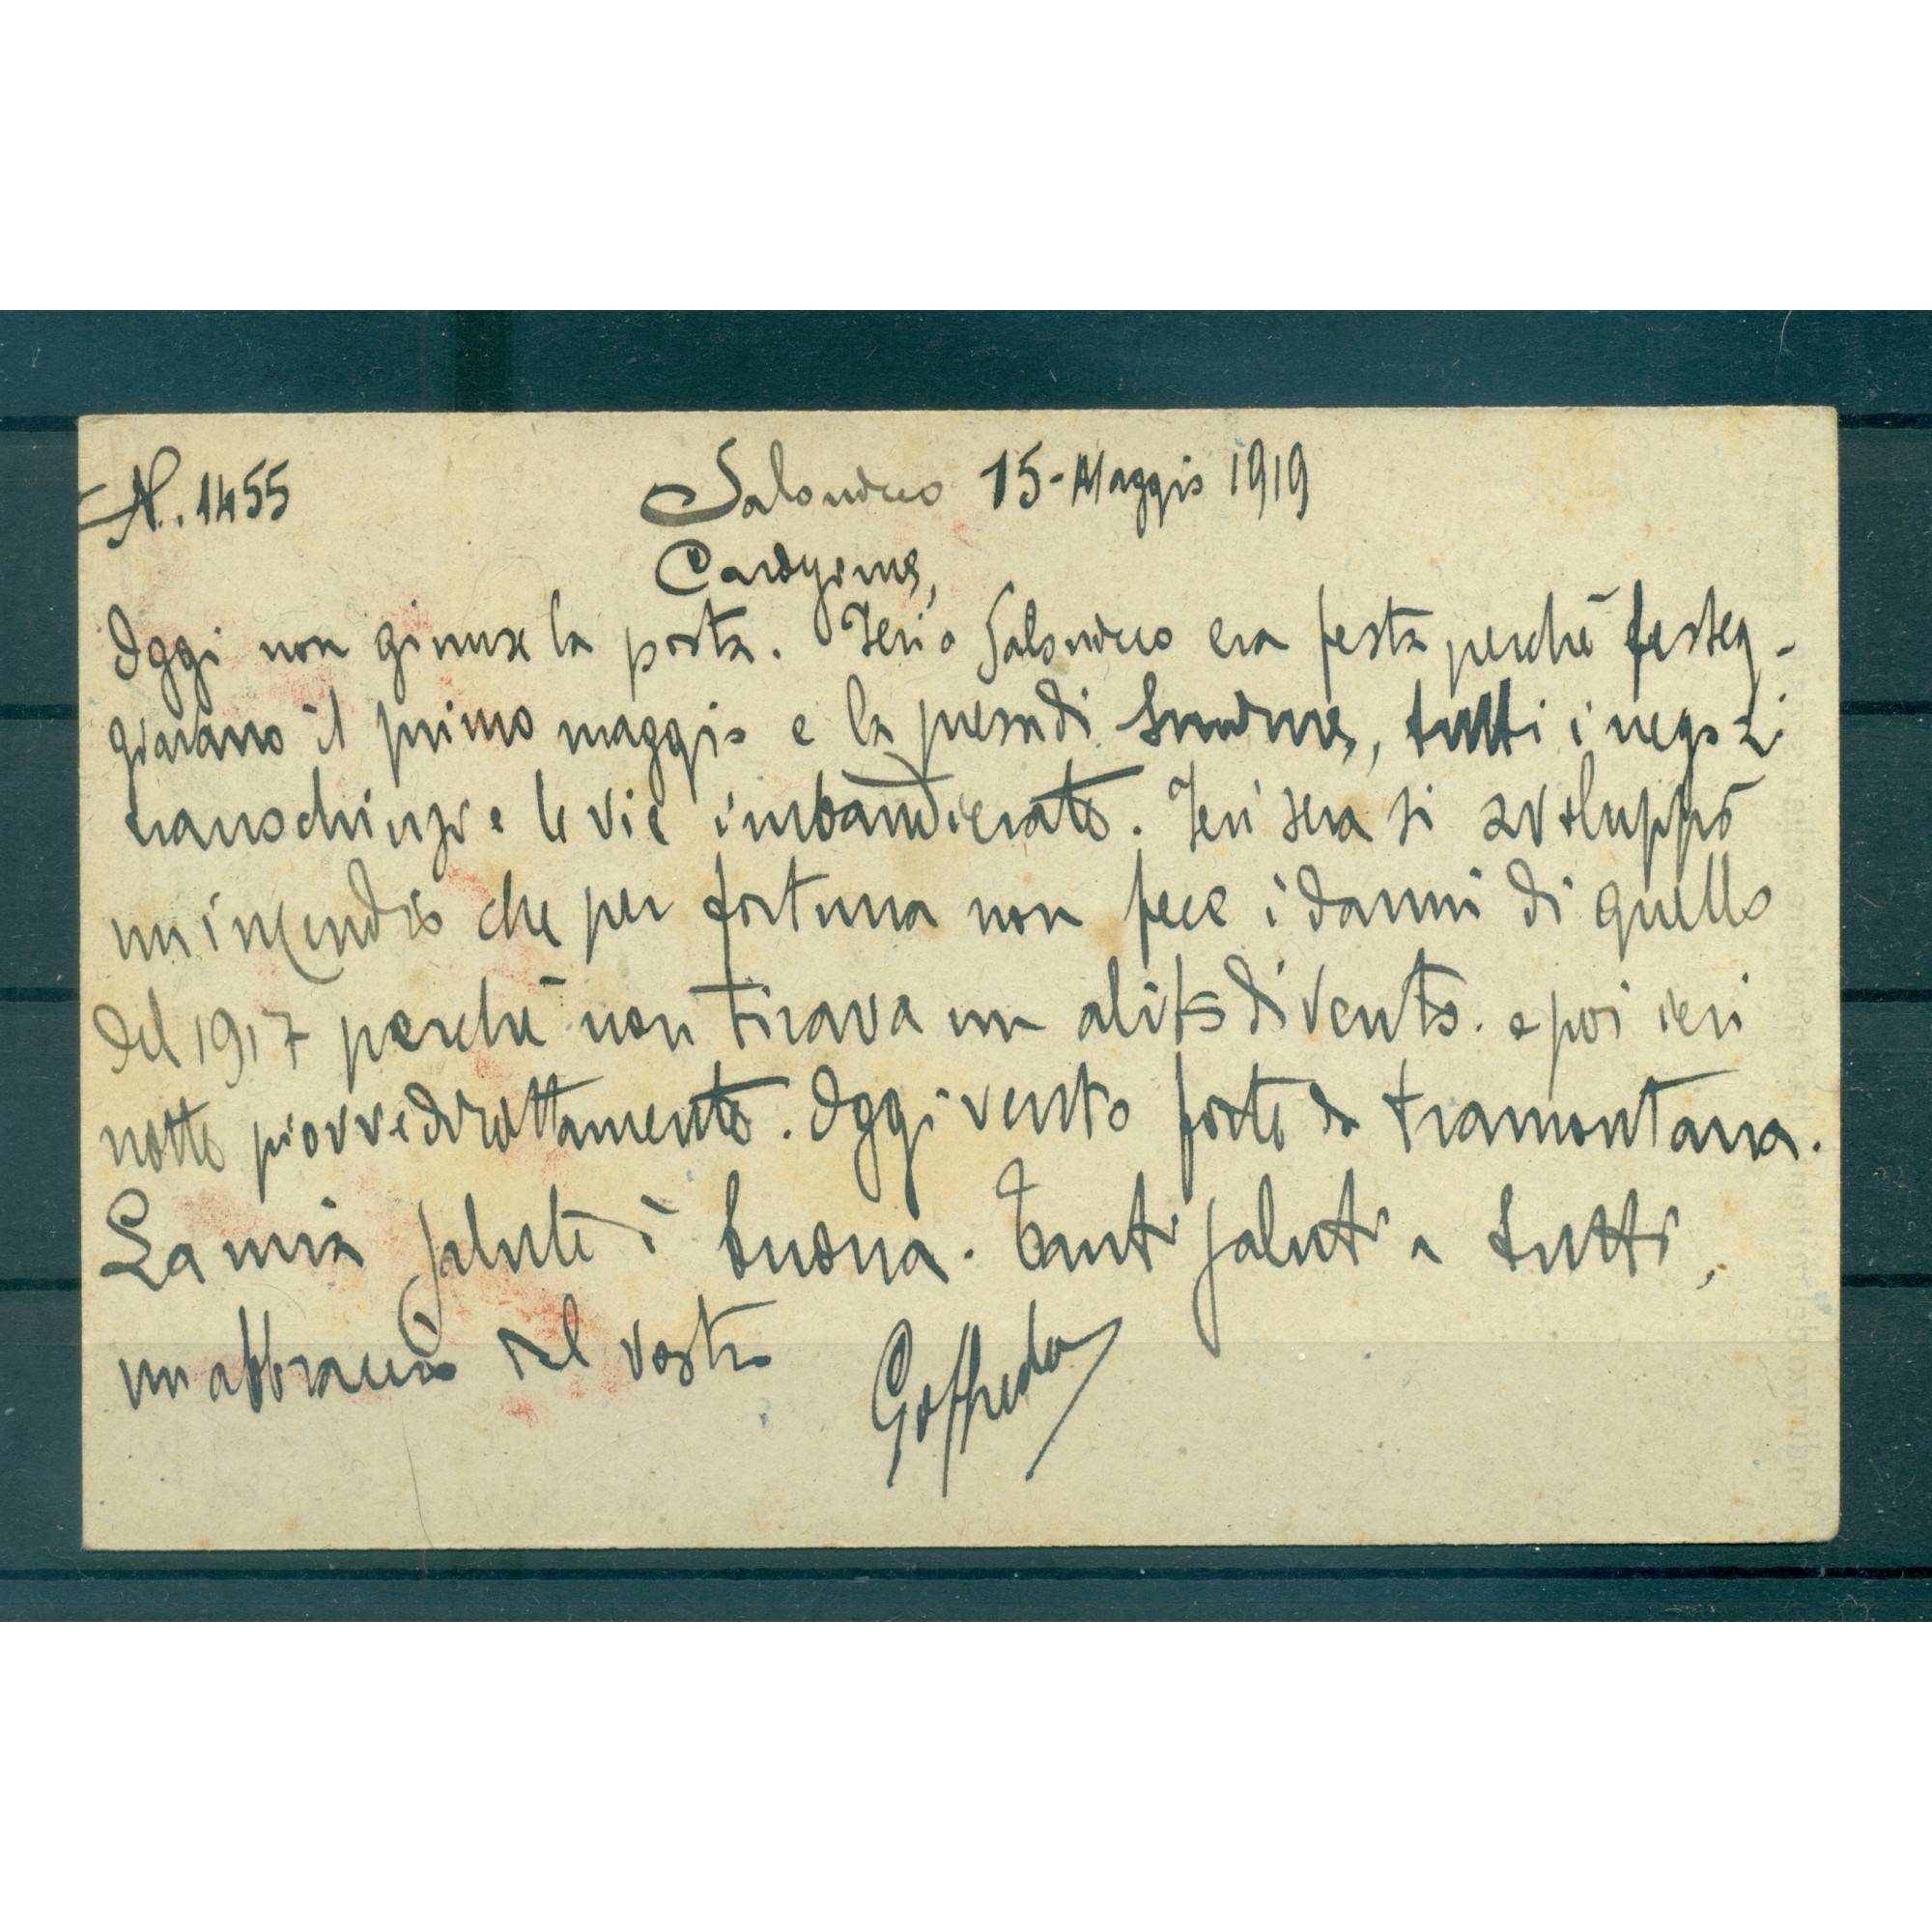 N. 1455
Salonicco 15-Maggio 1919
Carissimi,
Oggi non giunse la posta. Ieri a Salonicco era festa perchè festeg-
giavano il primo maggio e la presa di Smirne, tutti i negozi
erano chiusi e le vie imbandierate. Ieri sera si sviluppò
un incendio che per fortuna non fece i danni di quello
del 1917 perchè non tirava un alito di vento. e poi ieri
notte piovve dirottamente. Oggi vento forte da tramontana.
La mia salute è buona. Tanti saluti a tutti,
un abbraccio dal vostro Goffredo